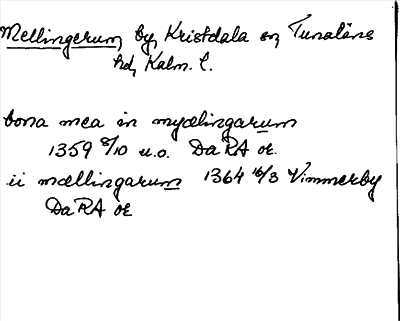 Mellingerum, by, Kristdala sn, Tunaläns
hd, Kalm. l.
bona mea in myælingarum
1359 8/10 u.o. DaRA oe.
ii mællingarum 1364 16/3 Vimmerby
DaRA oe